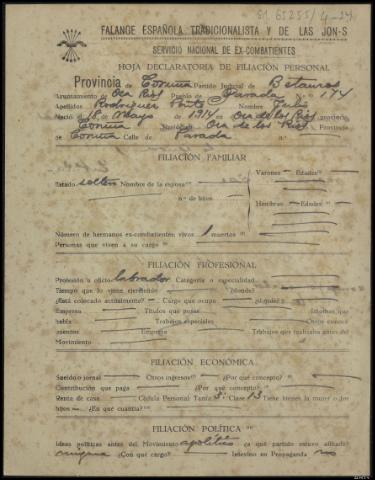 FALANGE ESPAÑOLA TRADICIONALISTA Y DE LAS JON-S
SERVICIO NACIONAL DE EX-COMBATIENTES
HOJA DECLARATORIA DE FILIACIÓN PERSONAL
Provincia de Coruña Partido Judicial de Betanzos
Ayuntamiento de Oza Rios Pueblo de Parada N.º 174
Apellidos Rodriguez Nombre Julio
Nació el 18 de Mayo de 1914 en Oza de los Rios provincia
Coruña Oza de los Rios Provincia
de Coruña Calle de Parada n.º
FILIACIÓN FAMILIAR
Varones Edades
Estado soltero Nombre de la esposa
n.º de hijos
Hembras Edades
Número de hermanos ex-combatientes: vivos 1 muertos
Personas que viven a su cargo
FILIACIÓN PROFESIONAL
Profesión u oficio labrador Categoría o especialidad
Tiempo que lo viene ejerciendo ¿Dónde?
¿Está colocado actualmente? Cargo que ocupa ¿dónde?
Empresa Títulos que posee Idiomas que
habla Trabajos especiales Otros conoci-
mientos Empresa Trabajos que realizaba antes del
Movimiento
FILIACIÓN ECONÓMICA
Sueldo o jornal Otros ingresos ¿Por qué concepto?
Contribución que paga ¿Por qué concepto?
Renta de casa Cédula Personal Tarifa 3ª Clase 13 Tiene bienes la mujer o los
hijos ¿En qué cuantía?
FILIACIÓN POLÍTICA
Ideas políticas antes del Movimiento apolitico ¿a qué partido estuvo afiliado?
ninguno ¿Con qué cargo? Intervino en Propaganda no